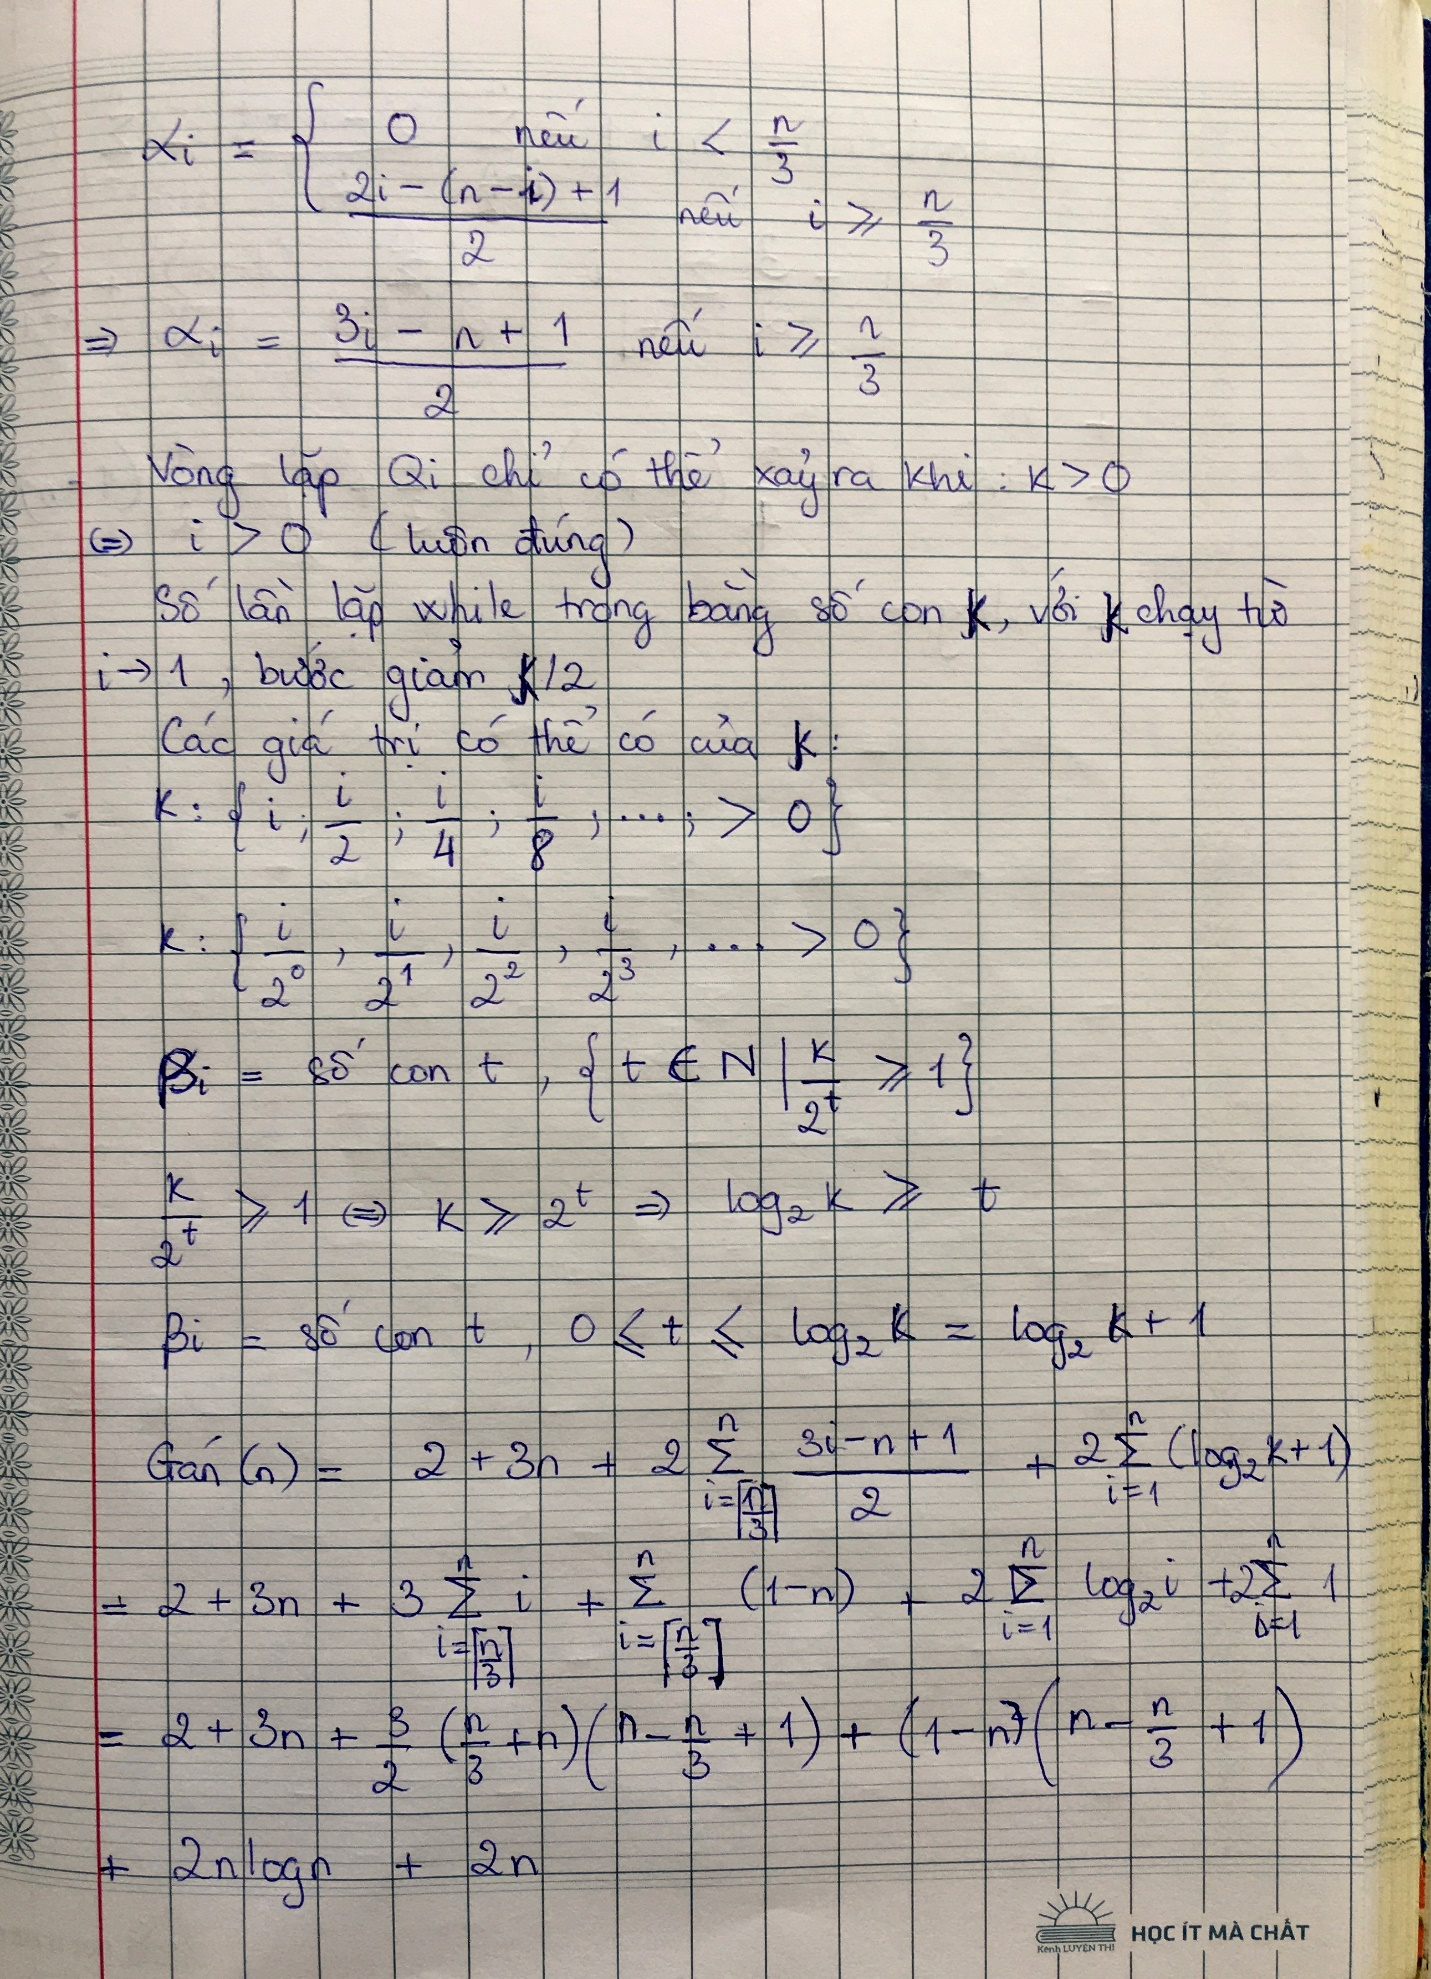 αi = { 0 nếu i < n/3
(2i – (n – i) + 1)/2 nếu i ⩾ n/3
⇒ αi = (3i – n + 1)/2 nếu i ⩾ n/3
Vòng lặp Qi chỉ có thể xảy ra khi : k > 0
⇔ i > 0 (luôn đúng)
Số lần lặp while trong bằng số con k, với k chạy từ
i → 1, bước giảm k/2
Các giá trị có thể có của k:
K: { i ; i/2 ; i/4 ; i/8 , ... ; > 0 }
k: { i/2^0 , i/2^1 , i/2^2 , i/2^3 , ... > 0 }
βi = số con t , { t ∈ N | k/2^t ⩾ 1 }
k/2^t ⩾ 1 ⇔ k ⩾ 2^t ⇒ log₂k ⩾ t
βi = số con t , 0 ⩽ t ⩽ log₂k = log₂k + 1
Gán(n) = 2 + 3n + 2 Σ_{i=⌈n/3⌉}^{n} (3i – n + 1)/2 + 2 Σ_{i=1}^{n} (log₂k + 1)
= 2 + 3n + 3 Σ_{i=⌈n/3⌉}^{n} i + Σ_{i=⌈n/3⌉}^{n} (1 – n) + 2 Σ_{i=1}^{n} log₂i + 2 Σ_{i=1}^{n} 1
= 2 + 3n + 3/2 (n/3 + n)(n – n/3 + 1) + (1 – n)(n – n/3 + 1)
+ 2nlogn + 2n
HỌC ÍT MÀ CHẤT
Kênh LUYỆN THI